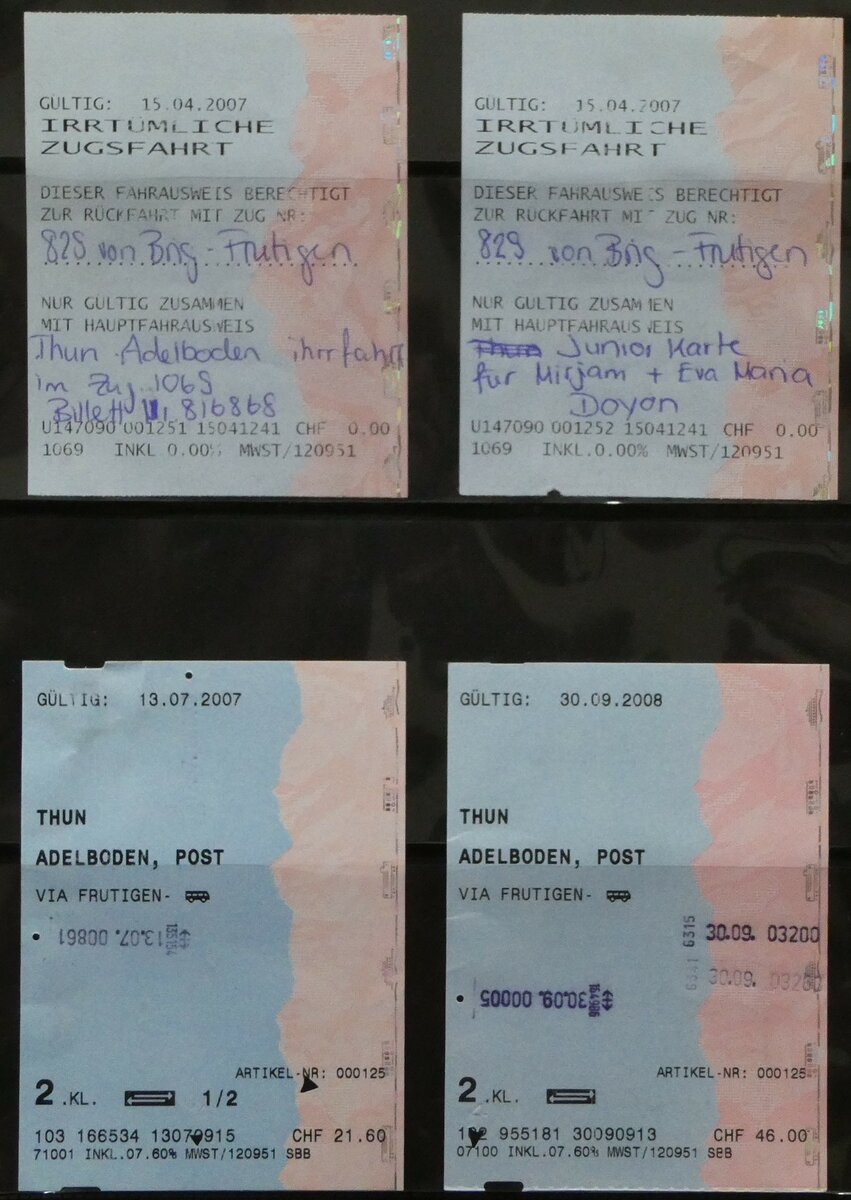 GÜLTIG: 15.04.2007
IRRTÜMLICHE
ZUGSFAHRT
DIESER FAHRAUSWEIS BERECHTIGT
ZUR RÜCKFAHRT MIT ZUG NR:
829 von Brig - Frutigen
NUR GÜLTIG ZUSAMMEN
MIT HAUPTFAHRAUSWEIS
Thun - Adelboden ihrrfahrt
im Zug 1069
Billett 816868
U147090 001251 15041241 CHF 0.00
1069 INKL 0.00% MWST/120951
GÜLTIG: 15.04.2007
IRRTÜMLICHE
ZUGSFAHRT
DIESER FAHRAUSWEIS BERECHTIGT
ZUR RÜCKFAHRT MIT ZUG NR:
829 von Brig - Frutigen
NUR GÜLTIG ZUSAMMEN
MIT HAUPTFAHRAUSWEIS
Thun Junior Karte
für Mirjam + Eva Maria
Doyon
U147090 001252 15041241 CHF 0.00
1069 INKL.0.00% MWST/120951
GÜLTIG: 13.07.2007
THUN
ADELBODEN, POST
VIA FRUTIGEN-
13.07. 00861
ARTIKEL-NR: 000125
2.KL. 1/2
103 166534 13070915 CHF 21.60
71001 INKL.07.60% MWST/120951 SBB
GÜLTIG: 30.09.2008
THUN
ADELBODEN, POST
VIA FRUTIGEN-
6315 30.09. 03200
30.09. 03200
164986 30.09. 00005
ARTIKEL-NR: 000125
2.KL.
955181 30090913 CHF 46.00
07100 INKL.07.60% MWST/120951 SBB